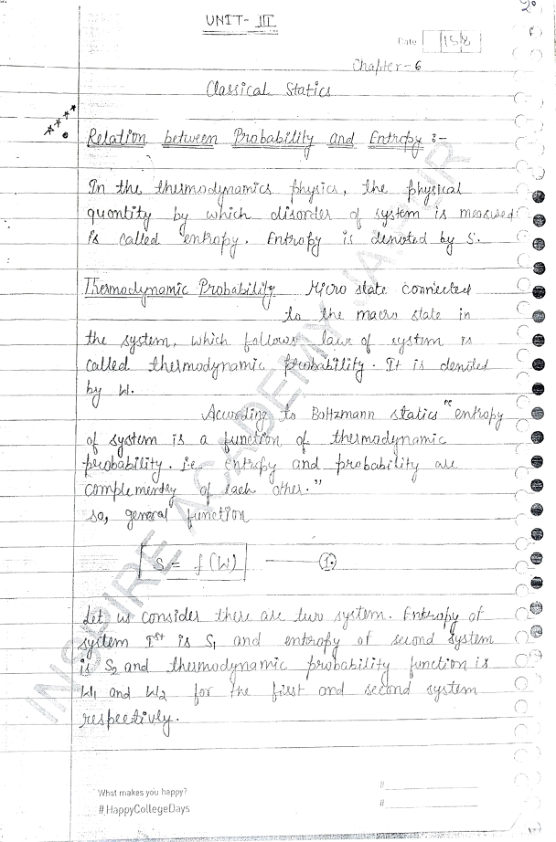 UNIT- III
Date 15/8
Chapter-6
Classical Statics
Relation between Probability and Entropy :-
In the thermodynamics physics, the physical
quantity by which disorder of system is measured
is called entropy. Entropy is denoted by S.
Thermodynamic Probability Micro state connected
to the macro state in
the system, which follows law of system is
called thermodynamic probability. It is denoted
by W.
According to Boltzmann statics "entropy
of system is a function of thermodynamic
probability. i.e entropy and probability are
complementry of each other."
so, general function
S = f (W) —— 1.
Let us consider there are two system. Entropy of
system Ist is S1 and entropy of second system
is S2 and thermodynamic probability function is
W1 and W2 for the first and second system
respectivly.
What makes you happy?
#HappyCollegeDays
#
#
INSPIRE ACADEMY JAIPUR